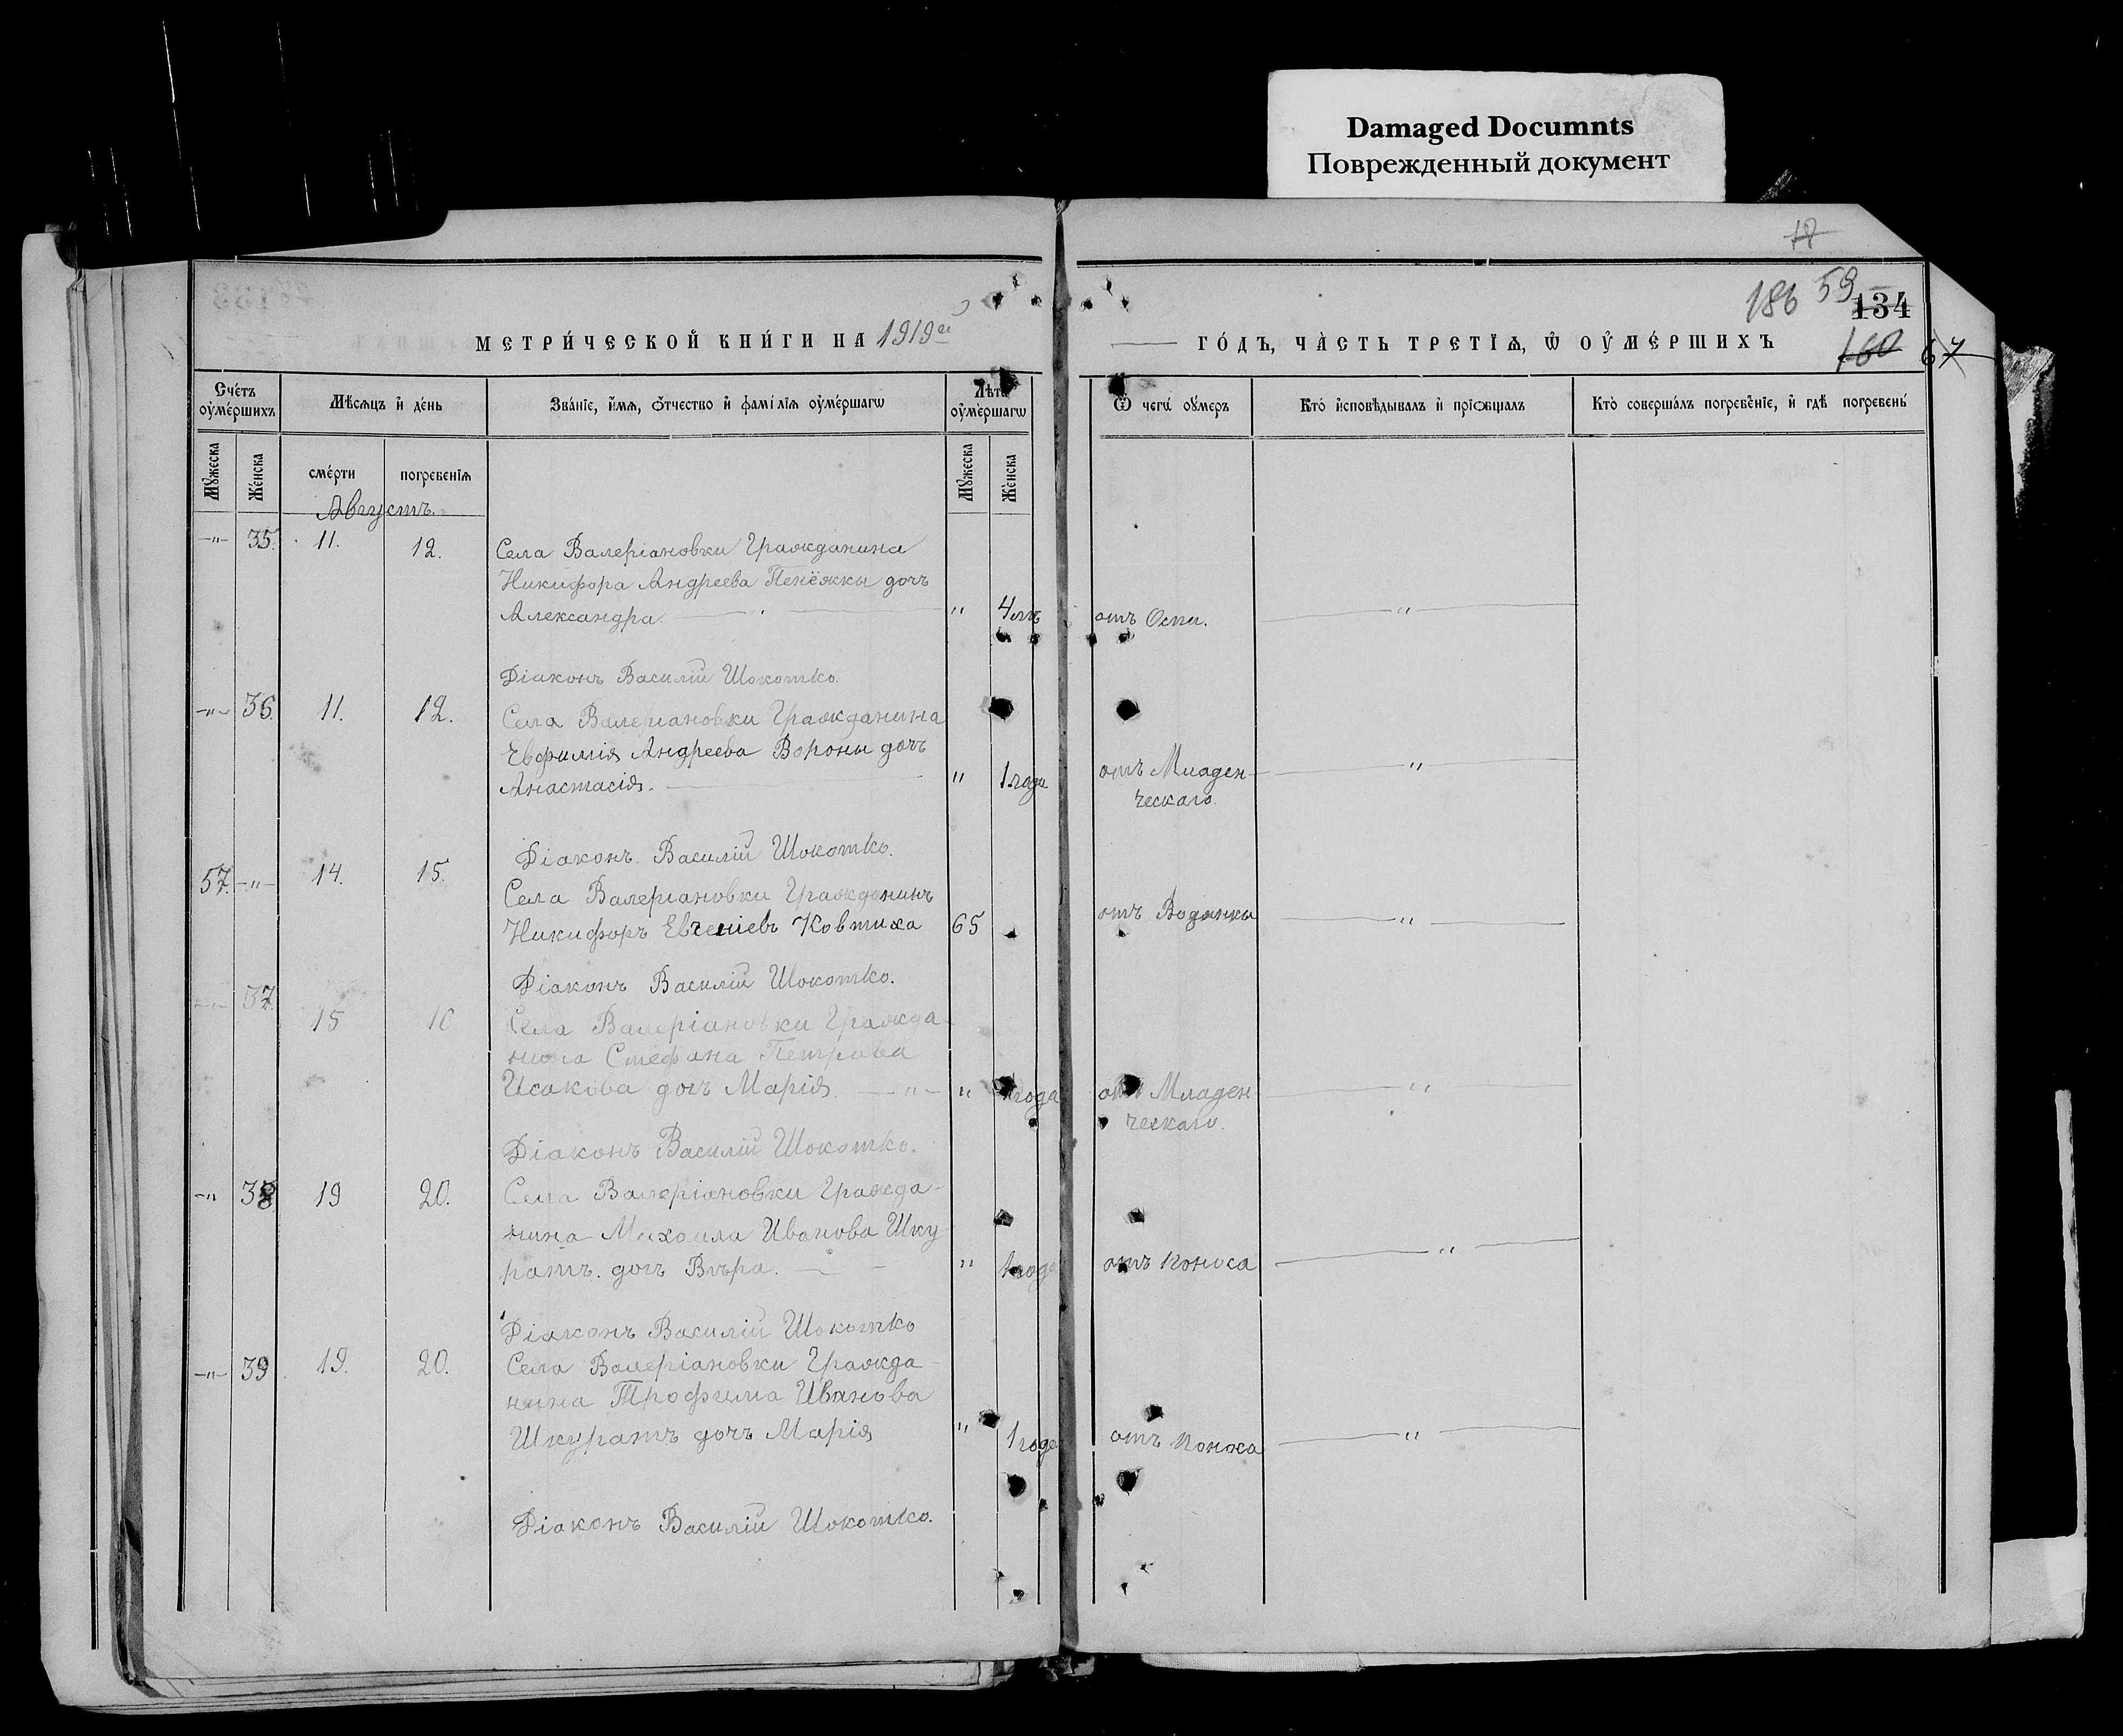 Damaged Documnts
Поврежденный документ
186 59 134
МЕТРИ́ЧЕСКОЙ КНИ́ГИ НА 1919й
ГО́ДЪ, ЧА̀СТЬ ТРЕТІѦ, Ѿ ОУ҆МЕ́РШИХЪ
160 67
Сче́тъ оу҆ме́ршихъ
Мѣ́сяцъ и҆ де́нь
Зва́нїе, и҆́мѧ, ѻ҆́тчество и҆ фамі́лїѧ оу҆ме́ршагѡ
Лѣ́та оу҆ме́ршагѡ
Ѿ чегѡ̀ оу҆́меръ
Кто̀ и҆сповѣ́дывалъ и҆ прїѡбща́лъ
Кто̀ соверша́лъ погребе́нїе, и҆ гдѣ̀ погребены̀
Мꙋ́жеска
Же́нска
сме́рти
погребе́нїѧ
Мꙋ́жеска
Же́нска
Августъ.
-"- 35. 11. 12. Села Валеріановки Гражданина
Никифора Андреева Пенёжки дочь
Александра. " 4 лѣ отъ Оспы. "
Діаконъ Василій Шокотко.
-"- 36. 11. 12. Села Валеріановки Гражданина
Евфимія Андреева Вороны дочь
Анастасія. " 1 года отъ Младен- "
ческаго.
Діаконъ Василій Шокотко.
57. -"- 14. 15. Села Валеріановки Гражданинъ
Никифоръ Евгеніевъ Ковтиха 65 отъ Водянки "
Діаконъ Василій Шокотко.
-"- 37. 15 16 Села Валеріановки Гражда-
нина Стефана Петрова
Исакова дочь Марія. -"- " 1 года отъ Младен- "
ческаго.
Діаконъ Василій Шокотко.
-"- 38 19 20. Села Валеріановки Гражда-
нина Михаила Иванова Шку
ратъ. дочь Вѣра. " 1 года отъ поноса "
Діаконъ Василій Шокотко
-"- 39 19. 20. Села Валеріановки Гражда-
нина Трофима Иванова
Шкуратъ дочь Марія " 1 года отъ поноса "
Діаконъ Василій Шокотко.